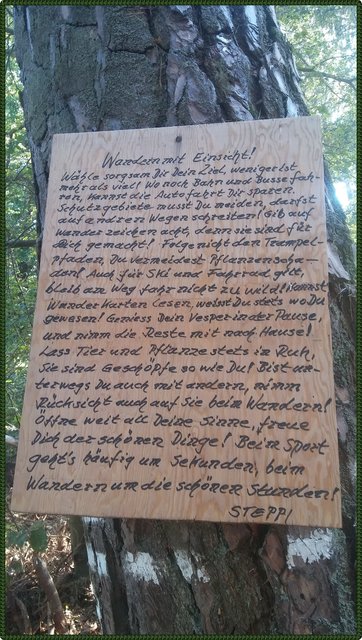 Wandern mit Einsicht!
Wähle sorgsam Dir Dein Ziel, weniger ist
mehr als viel! Wo noch Bahn und Busse fah-
ren, kannst die Autofahrt Dir sparen.
Schutzgebiete musst Du meiden, darfst
auf andren Wegen schreiten! Gib auf
Wanderzeichen acht, denn sie sind für
Dich gemacht! Folge nicht den Trampel-
pfaden, Du vermeidest Pflanzenscha-
den! Auch für Ski und Fahrrad gilt,
bleib am Weg fahr nicht zu wild! Kannst
Wander Karten lesen, weisst Du stets wo Du
gewesen! Geniess Dein Vesper in der Pause,
und nimm die Reste mit nach Hause!
Lass Tier und Pflanze stets in Ruh,
Sie sind Geschöpfe so wie Du! Bist un-
terwegs Du auch mit andern, nimm
Rücksicht auch auf Sie beim Wandern!
Öffne weit all Deine Sinne, freue
Dich der schönen Dinge! Beim Sport
geht's häufig um Sekunden, beim
Wandern um die schönen Stunden!
STEPPI